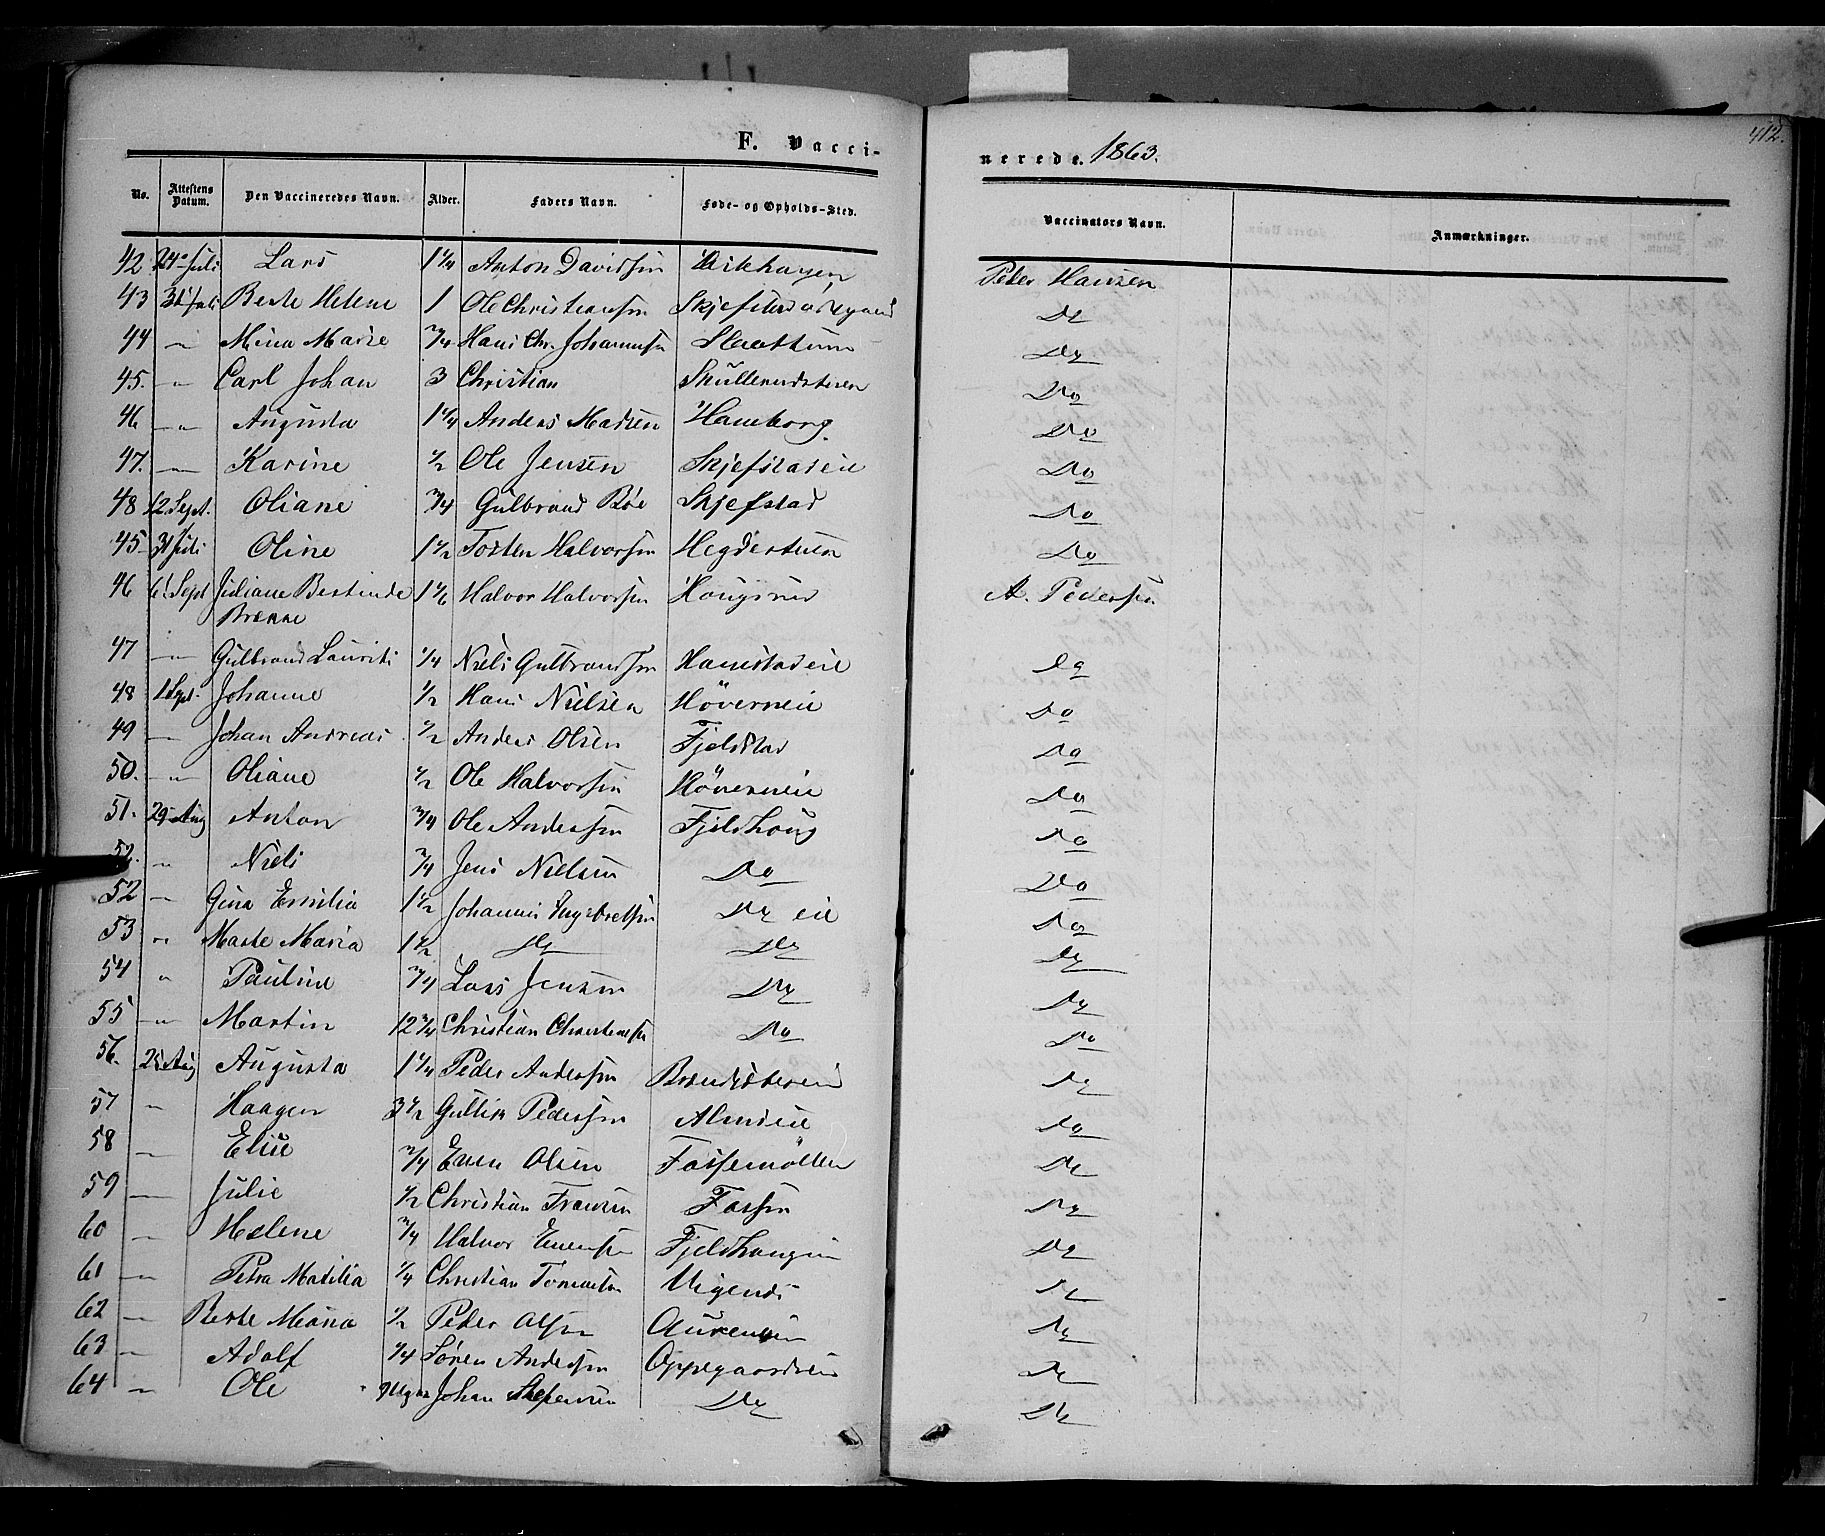 412.
F. Vacci-
nerede. 1863.
No. Attestens Datum. Den Vaccineredes Navn. Alder. Faders Navn. Føde- og Opholds-Sted. Vaccinators Navn. Anmærkninger.
42 24 Juli Lars 1 1/4 Anton Davidsen Peder Hansen
43 31 Juli Berte Helene 1 Ole Christiansen Do
44 " Mina Marie 3/4 Hans Chr. Johannesen Slaattum Do
45. " Carl Johan 3 Christian Skullerudsteren Do
46 " Augusta 1 1/4 Anders Madsen Hamborg Do
47. " Karine 1/2 Ole Jensen Skjefstadeie Do
48 12. Sept. Oliane 3/4 Gulbrand Bøe Skjefstad Do
45 31 Juli Oline 1 1/2 Torsten Halvorsen Do
46 6 Sept Juliane Bertine 1 1/6 Halvor Halvorsen Hougsrud A. Pedersen
47 " Gulbrand Laurits 1/4 Niels Gulbrandsen Do
48 1 Sept. Johanne 1/2 Hans Nielsen Höverneie Do
49 " Johan Andreas 1/2 Anders Olsen Fjeldstad Do
50. " Oliane 1/2 Ole Halvorsen Höverneie Do
51. 29 Aug Anton 3/4 Ole Andersen Fjeldhoug Do
52. " Niels 3/4 Jens Nielsen Do Do
52 " Gina Emilia 1 1/2 Johannes Engebretsen Do eie Do
53 " Marte Maria 1 1/2 Do Do Do
54 " Pauline 3/4 Lars Jensen Do Do
55 " Martin 12 3/4 Christian Christensen Do Do
56. Aug Augusta 1 1/4 Peder Andersen Do
57 " Haagen 3 1/2 Gullik Pedersen Do
58 " Elise 3/4 Even Olsen Fossemöllen Do
59 " Julie 1/2 Christian Fransen Fossen Do
60 " Helene 3/4 Halvor Evensen Do
61 " Petra Matilia 1/4 Christian Do
62 " Berte Maria 1/2 Peder Olsen Do
63 " Adolf 1/4 Sören Andersen Oppegaardseie Do
64 " Ole Johan Do Do